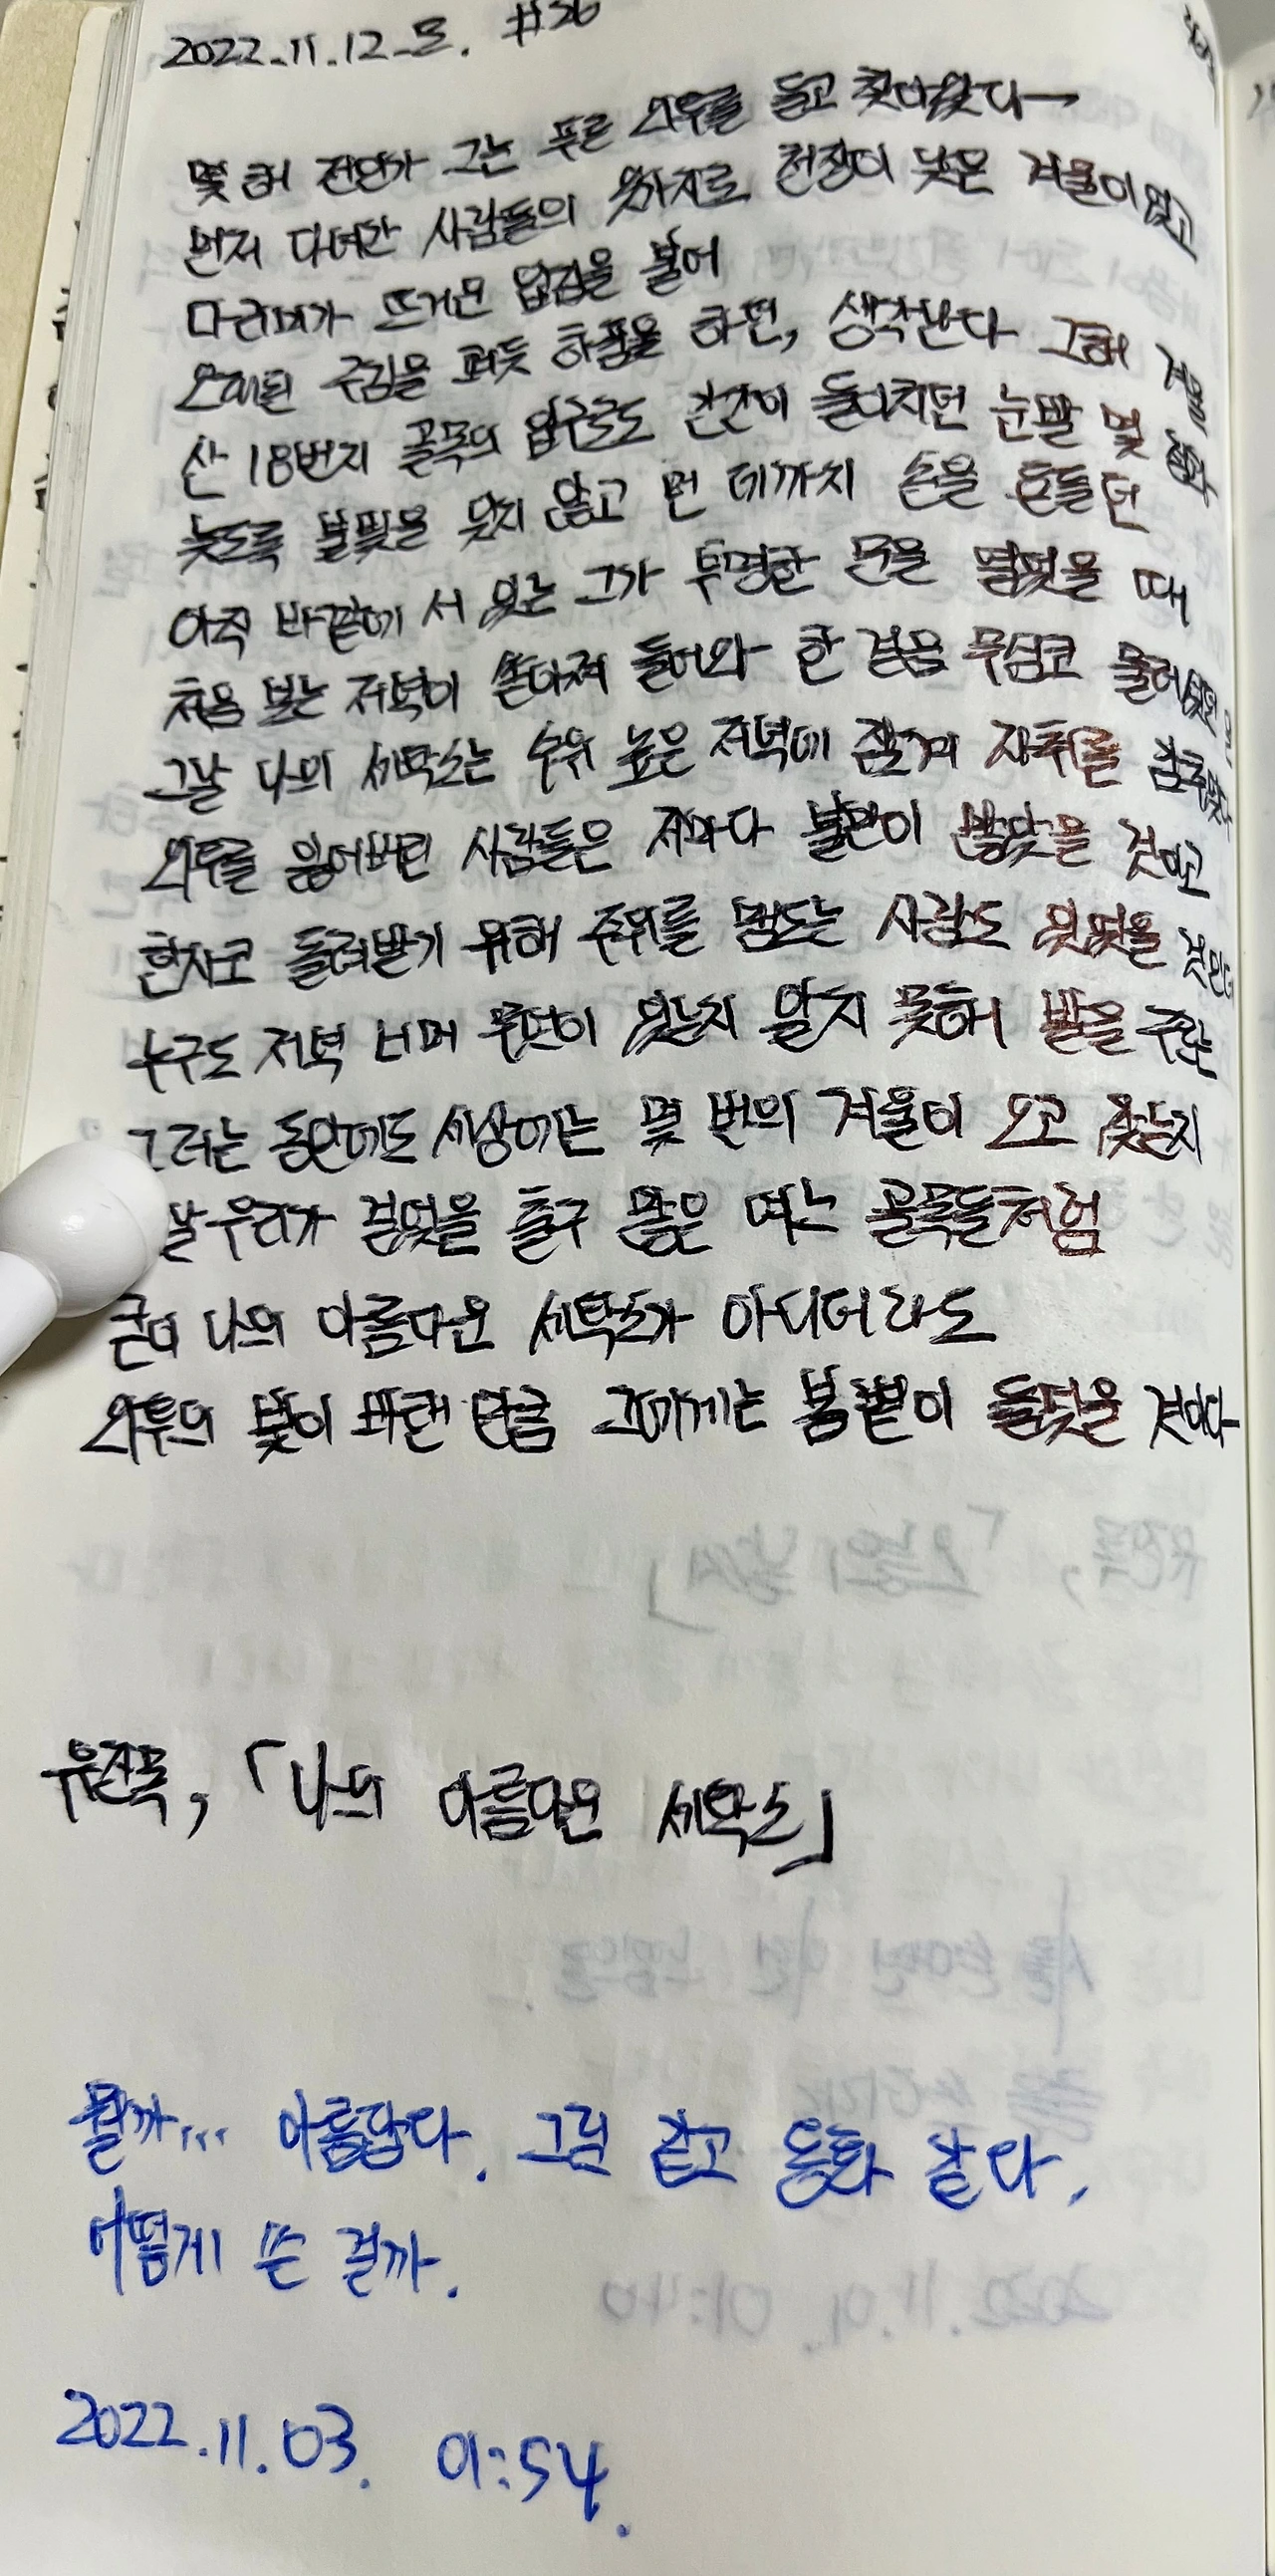 2022.11.12.토. #36
몇 해 전인가 그는 푸른 외투를 들고 찾아왔다
먼저 다녀간 사람들의 옷가지로 천장이 낮은 겨울이었고
다리미가 뜨거운 입김을 불어
오래된 주름을 펴듯 하품을 하면, 생각난다 그해 겨울
산 18번지 골목의 입구로도 간간이 들이치던 눈발 몇
늦도록 불빛을 잊지 않고 먼 데까지 손을 흔들던
아직 바깥에 서 있는 그가 투명한 문을 밀쳤을 때
처음 보는 저녁이 쏟아져 들어와 한 걸음 무심코 물러섰던
그날 나의 세탁소는 수위 높은 저녁에 잠겨 자취를 감추었다
외투를 잃어버린 사람들은 저마다 불만이 많았을 것이고
한사코 돌려받기 위해 주위를 맴도는 사람도 있었을 것인데
누구도 저녁 너머 무엇이 있는지 알지 못해 발을 구르는
그러는 동안에도 세상에는 몇 번의 겨울이 오고 갔는지
날 우리가 걸었을 출구 많은 여느 골목들처럼
굳이 나의 아름다운 세탁소가 아니더라도
외투의 빛이 바랜 만큼 그에게는 봄볕이 들었을 것이다
유진목, 「나의 아름다운 세탁소」
뭘까... 아름답다. 그림 같고 동화 같다.
어떻게 쓴 걸까.
2022.11.03. 01:54.